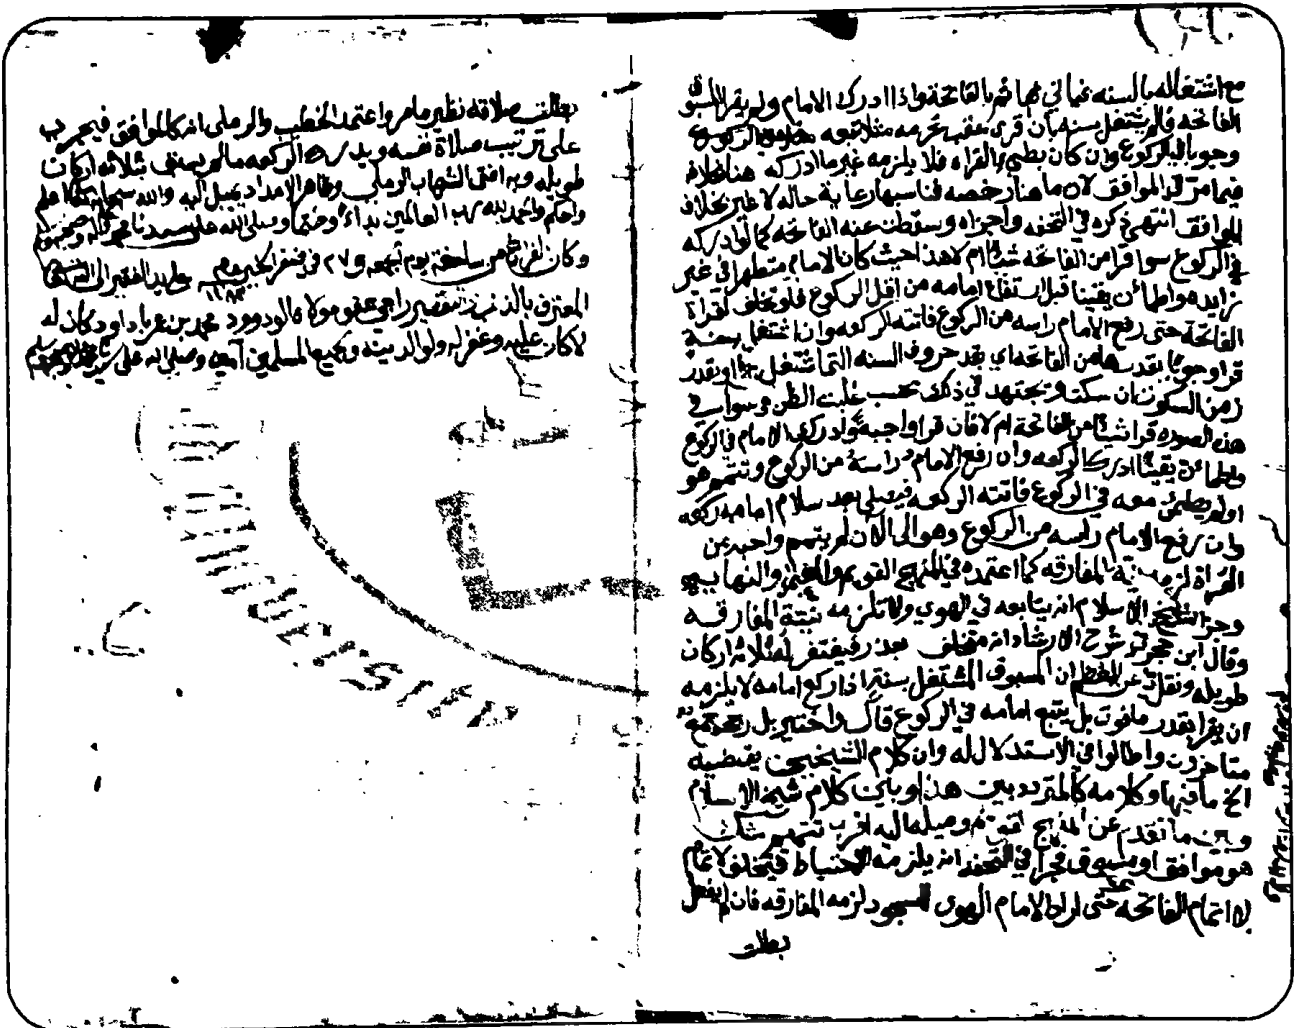 مع اشتغاله بالسنه فيأتي بها ثم بالفاتحة واذا ادرك الامام ولم يقرا المسبوق
الفاتحه فان لم يشتغل بسنه بان قرى عقب تحرمه مثلا تبعه الركوع
وجوبا في الركوع وان كان بطيء القراه فلا يلزمه غير ما ادركه هنا بخلافه
فيما مر في الموافق لان ما هنا رخصه فناسبها رعاية حاله لا غير بخلاف
الموافق انتهى ذكره في التحفه واجزاه وسقطت عنه الفاتحه كما لو ادركه
في الركوع سوا قرا من الفاتحه شيئا ام لا هذا حيث كان الامام متطهرا في غير
زايد هو اطمأن يقينا قبل ارتفاع امامه من اقل الركوع فلو تخلف لقراة
الفاتحة حتى رفع الامام راسه من الركوع فاتته الركعه وان اشتغل بسنة
قرا وجوبا بقدرها من الفاتحه اي بقدر حروف السنه التي اشتغل بها او بقدر
زمن السكوت ان سكت ويجتهد في ذلك بحسب غلبت الظن وسوا في
هذه الصوره قرا شيئا من الفاتحة ام لا فان قرا واجبه وادرك الامام في الركوع
واطمأن يقينا ادرك الركعه وان رفع الامام راسه من الركوع وتتم هو
او لم يطمئن معه في الركوع فاتته الركعه فيصلي بعد سلام امامه ركعه
وان رفع الامام راسه من الركوع وهو الى الان لم يتم واجبه من
القراة لزمه نية المفارقه كما اعتمده في المنهج القويم والنهايه
وجزا شيخ الاسلام انه يتابعه في الهوي ولا تلزمه نية المفارقه
وقال ابن حجر في شرح الارشاد انه متخلف بعذر فيغتفر له ثلاثه اركان
طويله ونقل عن المعظم ان المسبوق المشتغل بسنة اذا ركع امامه لا يلزمه
ان يقرا بقدر ما فوت بل يتبع امامه في الركوع قال واختير بل رجحه جمع
متاخرون واطالوا في الاستدلال له وان كلام الشيخين يقتضيه
الخ ما فيها وكلامه كالمتردد بين هذا وبين كلام شيخ الاسلام
وبين ما تقدم عن المنهج القويم وميله اليه اقرب تتمه شك
هو موافق او مسبوق فجزا في التحفه انه يلزمه الاحتياط فيتخلف لاتمام
الفاتحه حتى اراد الامام الهوي للسجود لزمه المفارقه فان لم يفعل
بطلت
بطلت صلاته نظير ما مر واعتمد الخطيب والرملي انه كالموافق فيجري
على ترتيب صلاة نفسه ويدرك الركعه ما لم يسبق بثلاثه اركان
طويله وبه افتى الشهاب الرملي وظاهر الامداد يميل اليه والله سبحانه اعلم
واحكم والحمد لله رب العالمين بداء وختما وصلى الله على سيدنا محمد واله وصحبه
وكان الفراغ من ساحته يوم الجمعه ٢٧ في صفر الخير ١١٨٣ على يد الفقير الى الله
المعترف بالذنب والتقصير راجي عفو مولاه الودود محمد بن عمر باداود كان له
لا كان عليه وغفر له ولوالديه وجميع المسلمين آمين وصلى الله على سيدنا محمد وصحبه وسلم